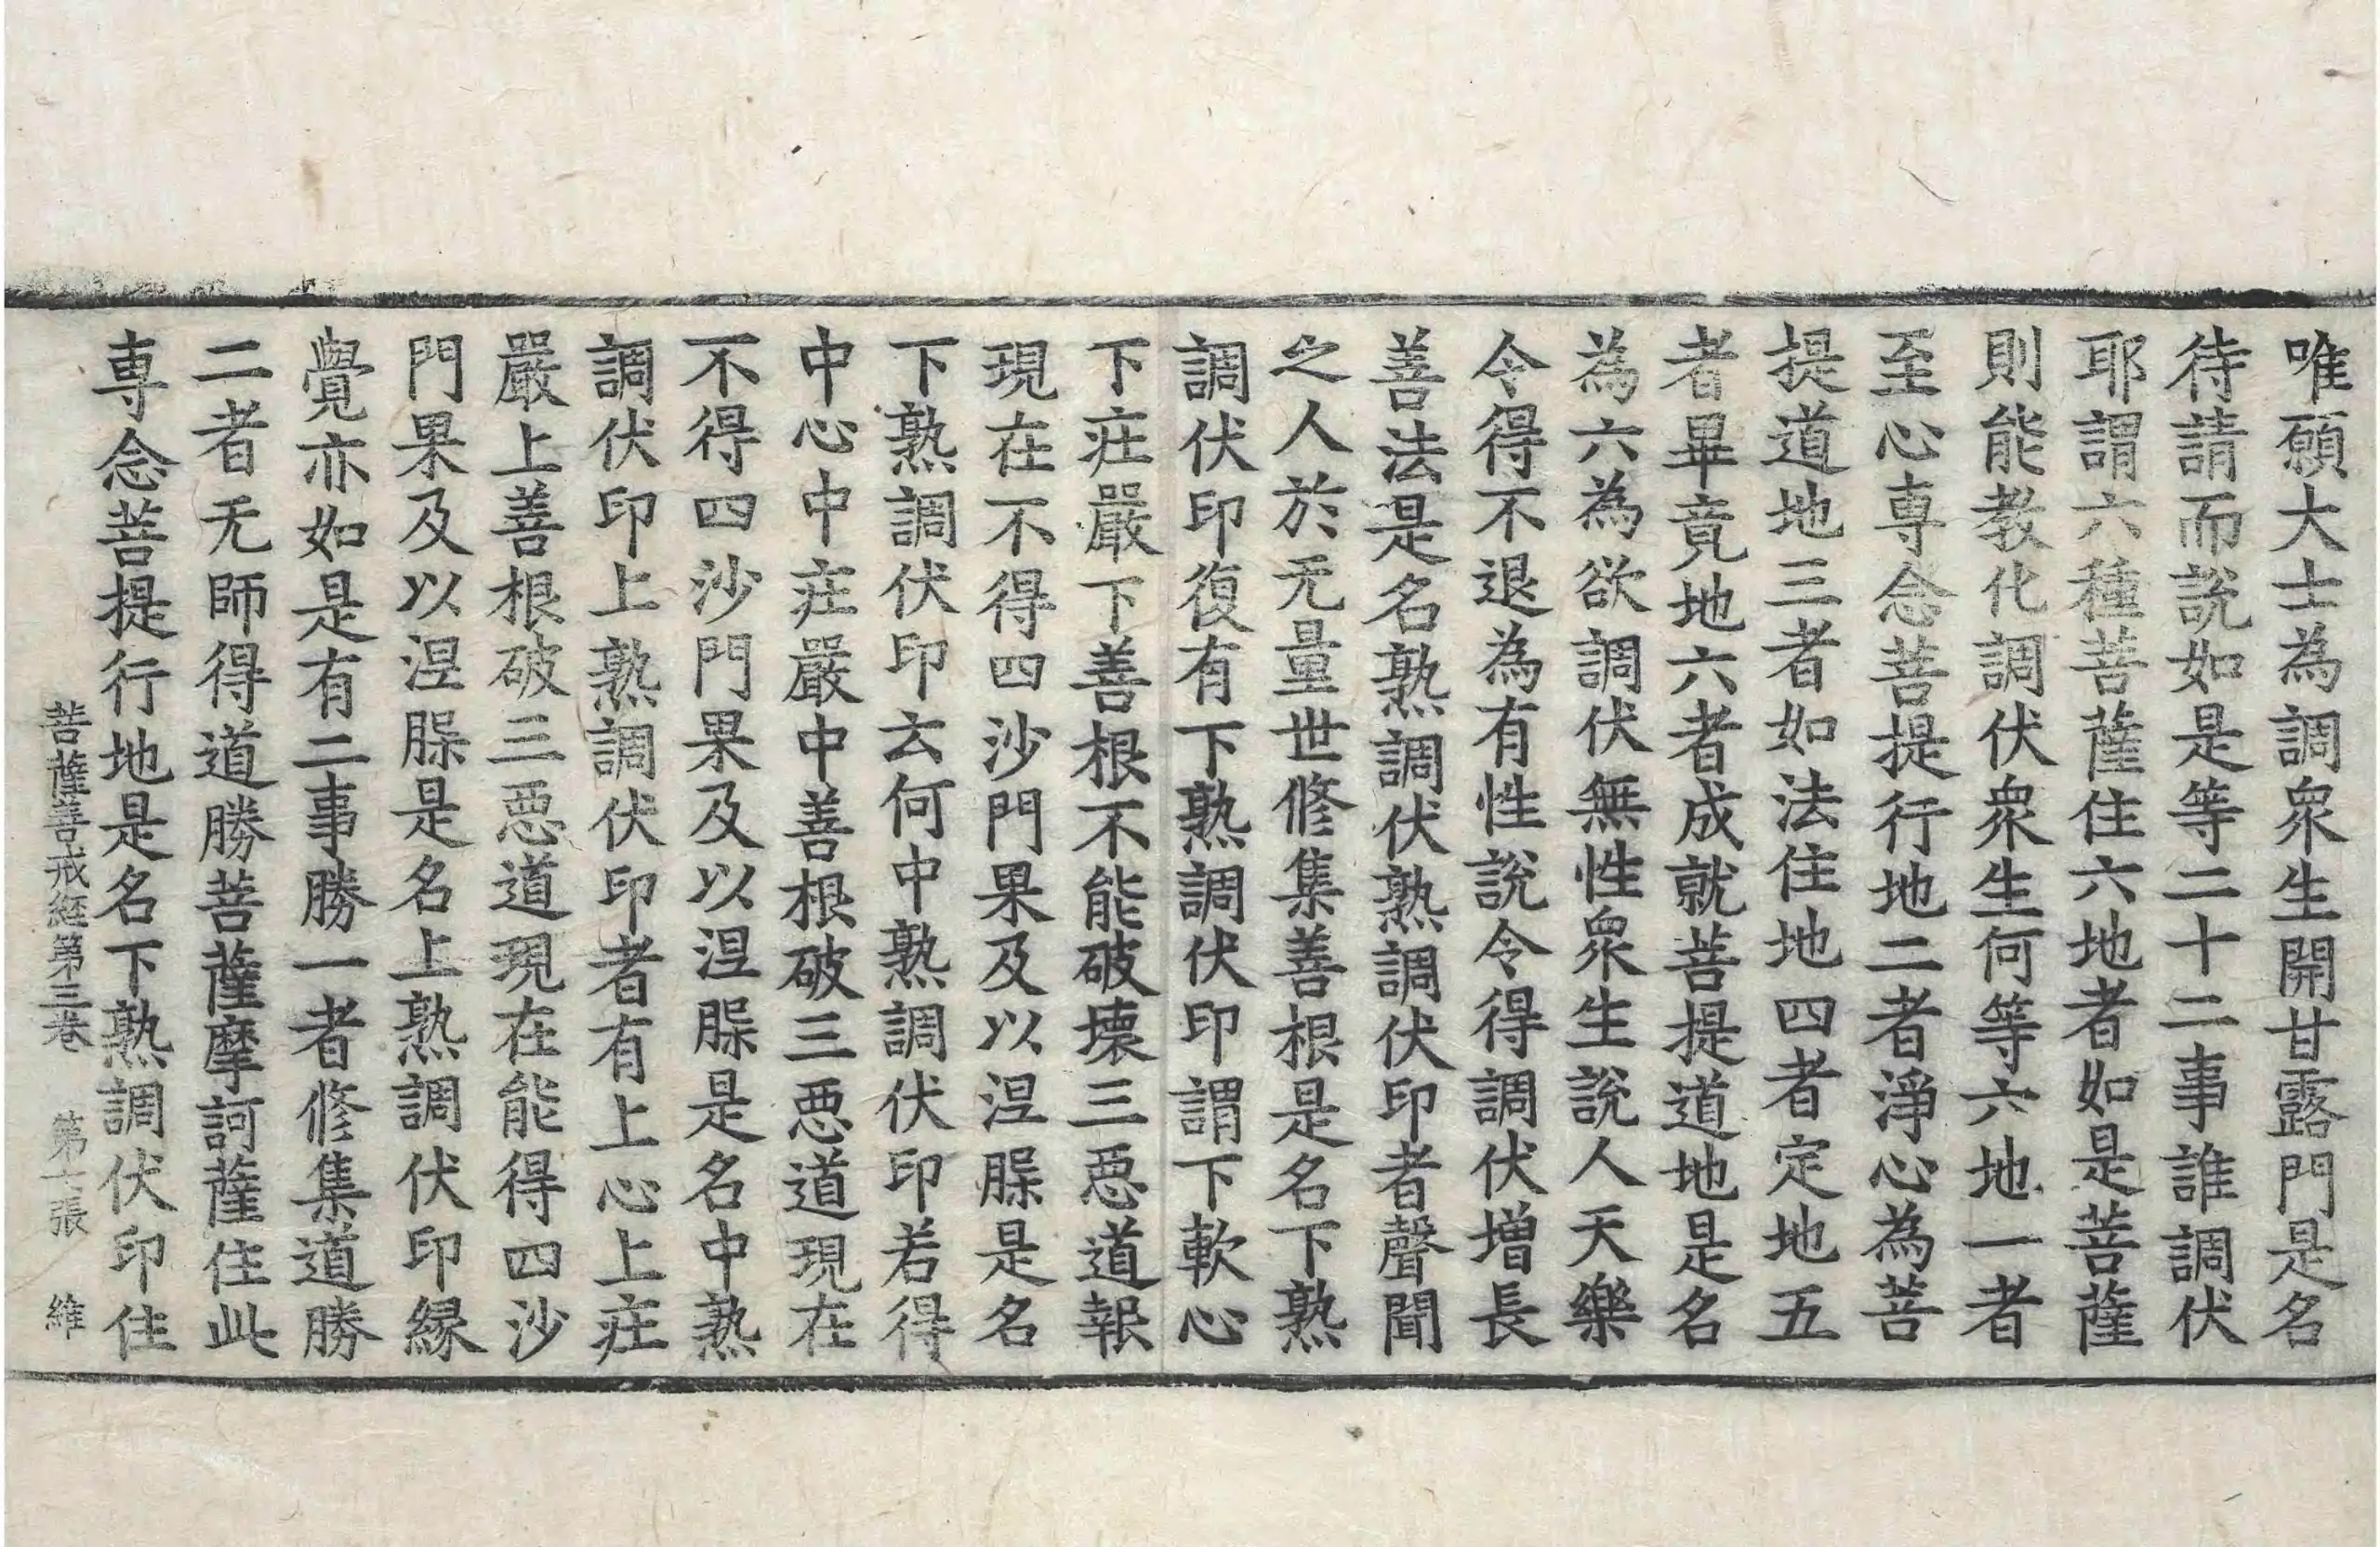 唯願大士為調衆生開甘露門是名
待請而說如是等二十二事誰調伏
耶謂六種菩薩住六地者如是菩薩
則能教化調伏衆生何等六地一者
至心專念菩提行地二者淨心為菩
提道地三者如法住地四者定地五
者畢竟地六者成就菩提道地是名
為六為欲調伏無性衆生說人天樂
令得不退為有性說令得調伏增長
善法是名熟調伏熟調伏印者聲聞
之人於无量世修集善根是名下熟
調伏印復有下熟調伏印謂下軟心
下莊嚴下善根不能破壞三惡道報
現在不得四沙門果及以涅槃是名
下熟調伏印云何中熟調伏印若得
中心中莊嚴中善根破三惡道現在
不得四沙門果及以涅槃是名中熟
調伏印上熟調伏印者有上心上莊
嚴上善根破三惡道現在能得四沙
門果及以涅槃是名上熟調伏印緣
覺亦如是有二事勝一者修集道勝
二者无師得道勝菩薩摩訶薩住此
專念菩提行地是名下熟調伏印住
菩薩善戒經第三卷 第七張 維